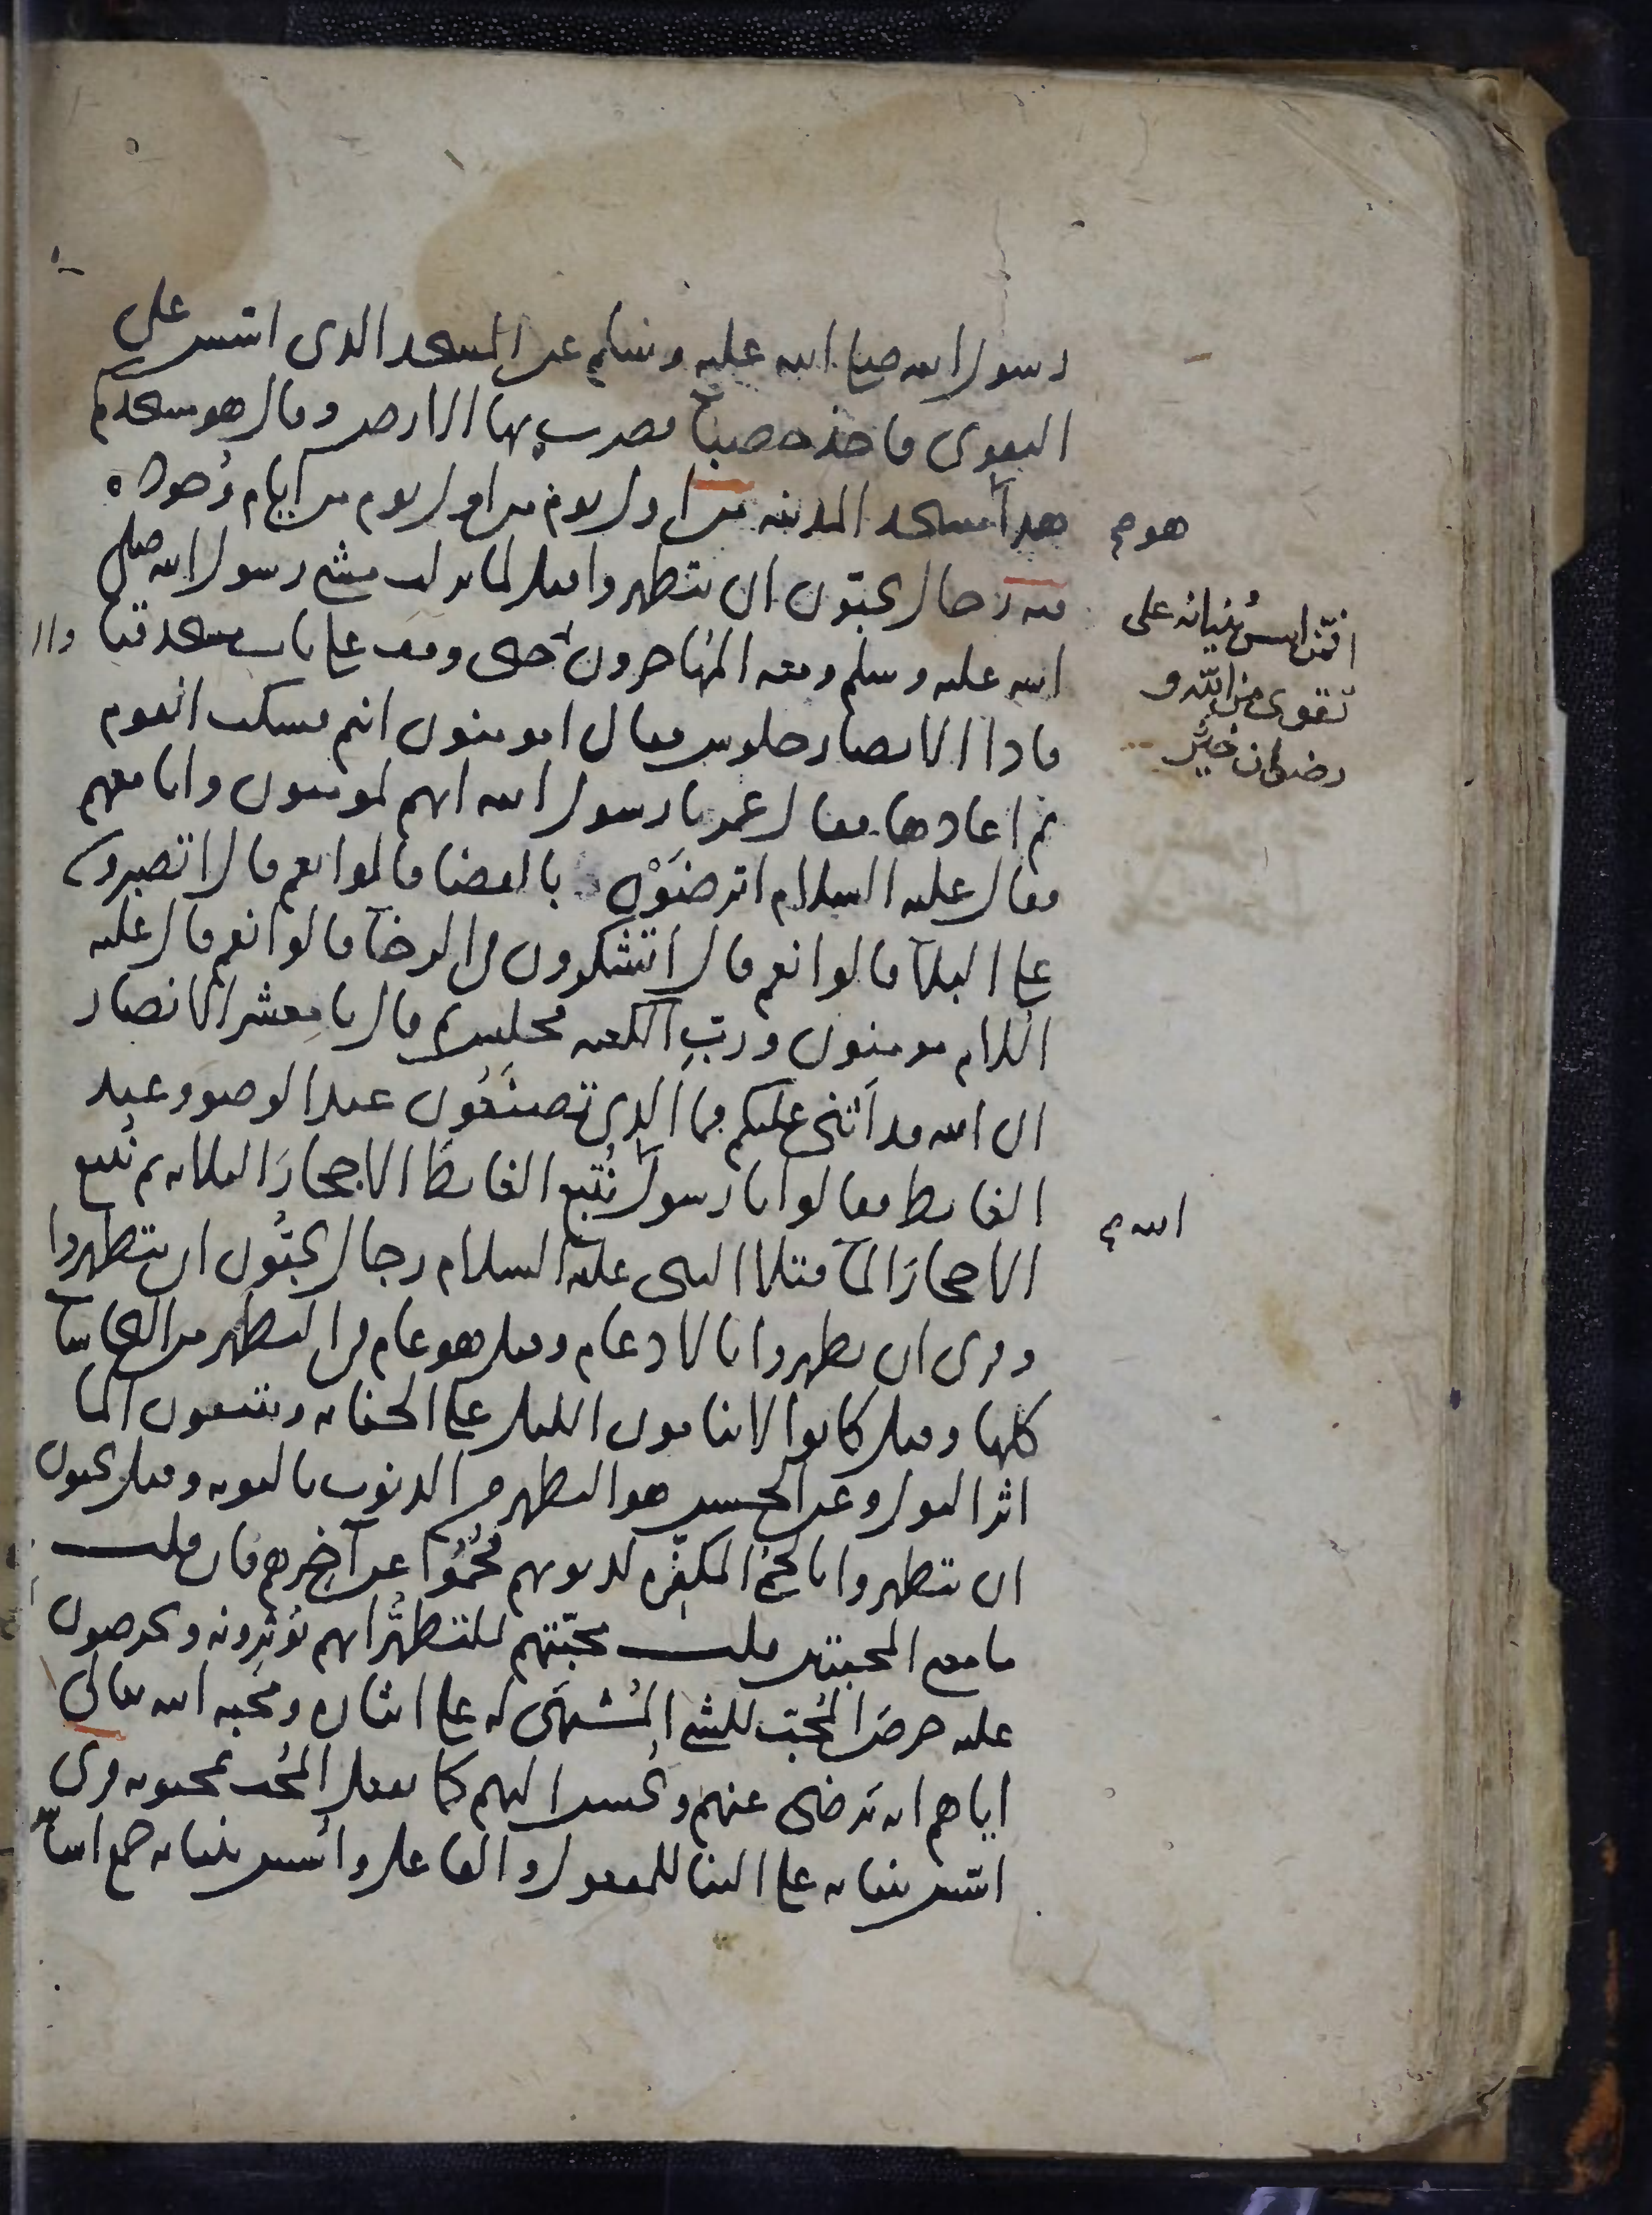 رسول الله صلى الله عليه وسلم عن المسجد الذي اسس على
التقوى فاخذ حصبا فضرب بها الارض وقال هو مسجدكم
هذا مسجد المدينه من اول يوم من اول يوم من ايام وجوده
فيه رجال يحبّون ان يتطهروا قيل لما نزلت مشى رسول الله صلى
الله عليه وسلم ومعه المهاجرون حتى وقف على باب مسجد قبا
فاذا الانصار جلوس فقال امومنون انتم فسكت القوم
ثم اعادها فقال عمر يا رسول الله انهم لمومنون وانا معهم
فقال عليه السلام اترضَوْن بالقضا قالوا نعم قال اتصبرون
على البلآ قالوا نعم قال اتشكرون في الرخآ قالوا نعم قال عليه
السلام مومنون وربّ الكعبه فجلس ثم قال يا معشر الانصار
ان الله قد اَثنى عليكم فما الذي تصنَعُون عند الوضوء وعند
الغايط فقالوا يا رسول نُتبع الغايطَ الاحجارَ الثلاثه ثم نُتبع
الاحجارَ المآ فتلا النبي عليه السلام رجال يحبّون ان يتطهروا
وقرى ان يطهروا بالادغام وقيل هو عام في التطهر من النجاسات
كلها وقيل كانوا لا ينامون الليل على الجنابه ويتبعون المآ
اثر البول وعن الحسن هو التطهر من الذنوب بالتوبه وقيل يحبون
ان يتطهروا بالحمّى المكفّره لذنوبهم فحُمّوا عن آخِرهم فان قلت
ما معنى المحبتين قلت محبّتهم للتطهُّر انهم يُوثِرونه ويحرصون
عليه حرصَ المُحبّ للشي المُشتهَى له على ايثاره ومحبه الله تعالى
اياهم انه يَرضى عنهم ويُحسن اليهم كما يفعل المُحب بمحبوبه قرى
اسّس بنيانه على البنا للمفعول والفاعل واُسس بنيانه جمع اساس
هو
افمّن اسس بُنيانه على
تقوى من الله و
رضوان خيرٌ
الله